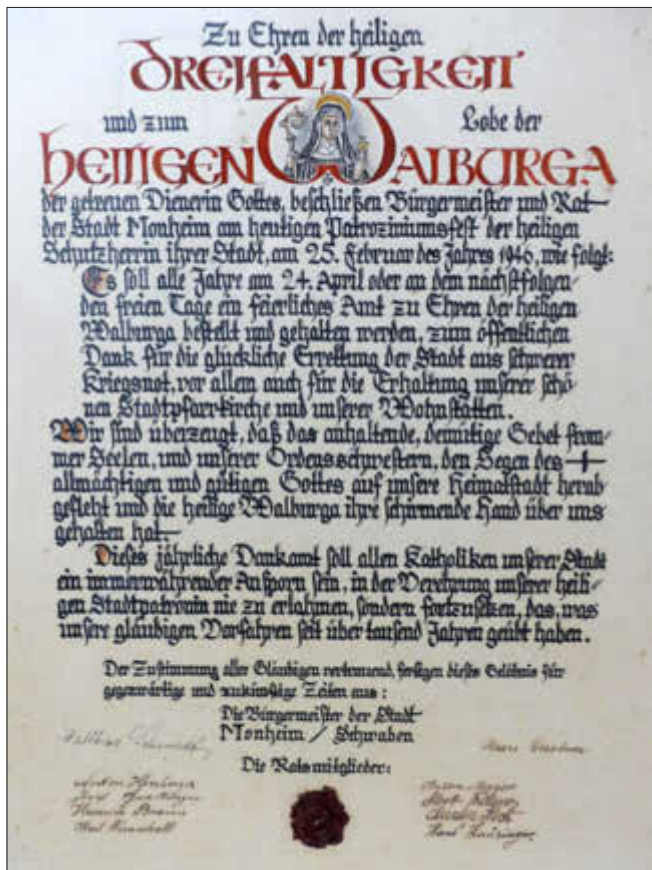 Zu Ehren der heiligen
DREIFALTIGKEIT
und zum Lobe der
HEILIGEN WALBURGA
der getreuen Dienerin Gottes, beschließen Bürgermeister und Rat
der Stadt Monheim am heutigen Patroziniumsfest der heiligen
Schutzherrin ihrer Stadt, am 25. Februar des Jahres 1946, wie folgt:
Es soll alle Jahre am 24. April oder an dem nächstfolgen-
den freien Tage ein feierliches Amt zu Ehren der heiligen
Walburga bestellt und gehalten werden, zum öffentlichen
Dank für die glückliche Errettung der Stadt aus schwerer
Kriegsnot, vor allem auch für die Erhaltung unserer schö-
nen Stadtpfarrkirche und unserer Wohnstätten.
Wir sind überzeugt, daß das anhaltende, demütige Gebet from-
mer Seelen, und unserer Ordensschwestern, den Segen des
allmächtigen und gütigen Gottes auf unsere Heimatstadt herab
gefleht und die heilige Walburga ihre schirmende Hand über uns
gehalten hat.
Dieses jährliche Dankamt soll allen Katholiken unserer Stadt
ein immerwährender Ansporn sein, in der Verehrung unserer heili-
gen Stadtpatronin nie zu erlahmen, sondern fortzusetzen, das, was
unsere gläubigen Vorfahren seit über tausend Jahren geübt haben.
Der Zustimmung aller Gläubigen vertrauend, fertigen dieses Gelöbnis für
gegenwärtige und zukünftige Zeiten aus:
Die Bürgermeister der Stadt
Monheim / Schwaben
Die Ratsmitglieder: